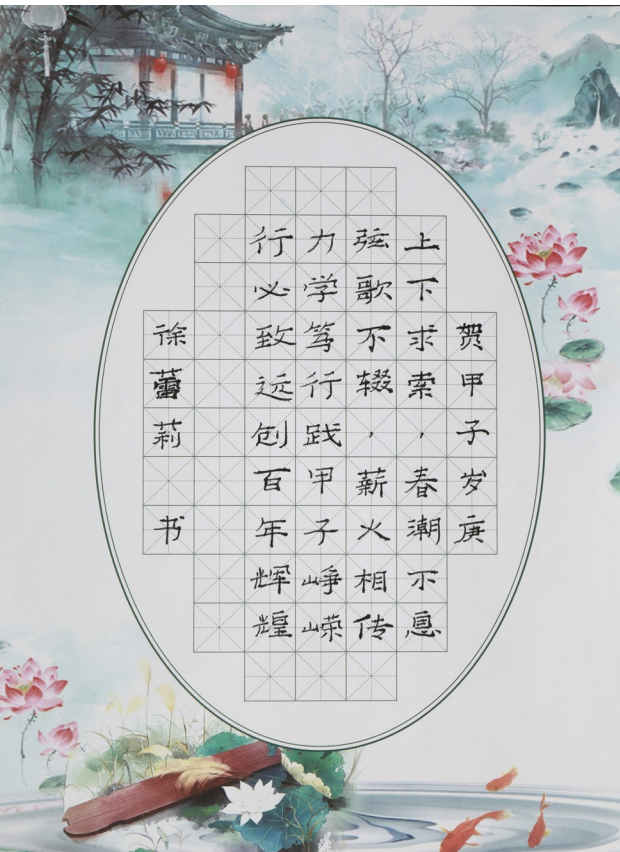 贺甲子岁庚
上下求索，春潮不息
弦歌不辍，薪火相传
力学笃行践甲子峥嵘
行必致远创百年辉煌
徐蕾莉 书